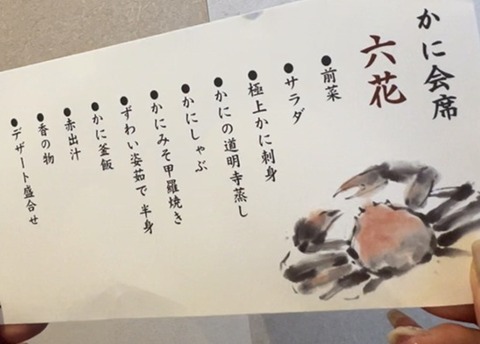 かに会席
六花
●前菜
●サラダ
●極上かに刺身
●かにの道明寺蒸し
●かにしゃぶ
●かにみそ甲羅焼き
●ずわい姿茹で 半身
●かに釜飯
●赤出汁
●香の物
●デザート盛合せ